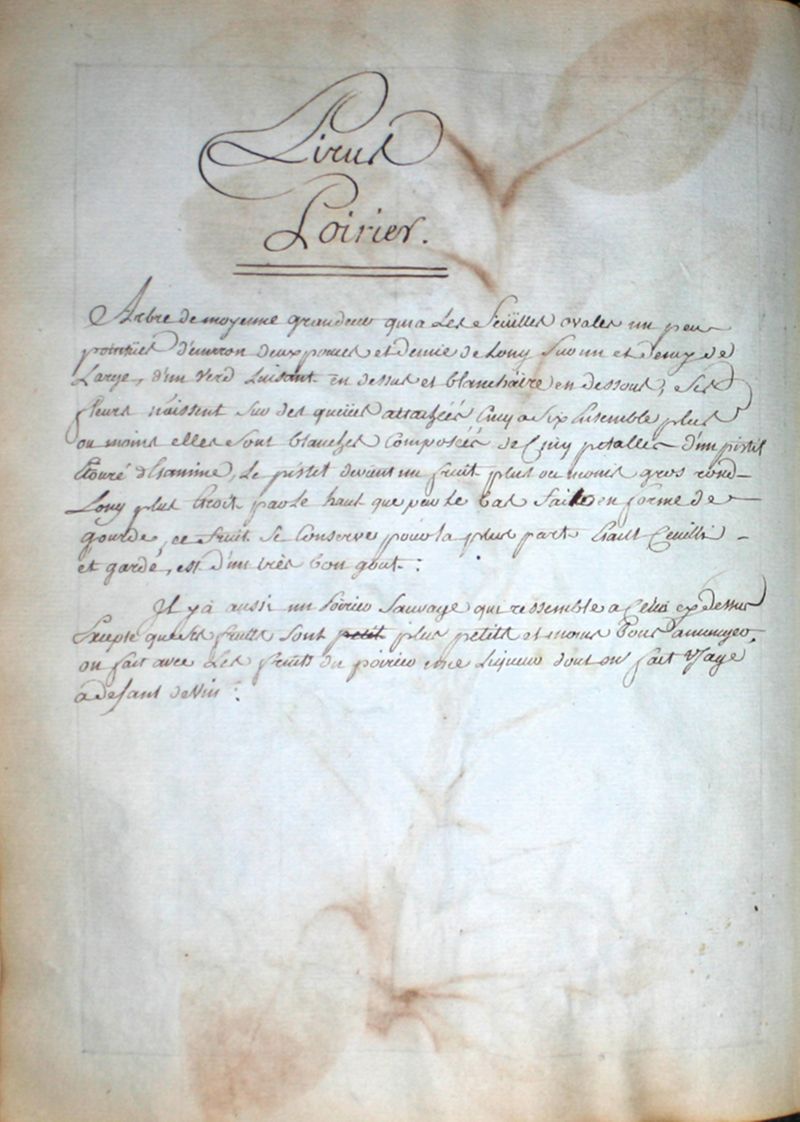 Pirus
Poirier.
Arbre de moyenne grandeur qui a Les feüilles ovales un peu
pointües d'environ deux pouces et demie de Long Sur un et demy de
Large, d'un verd Luisant en dessus et blanchâire en dessous, Ses
fleurs naissent Sur des queües attachéés Cinq a Six Ensemble plus
ou moins elles Sont blanches Composéés de Cinq petalles d'un pistil
Entouré d'Etamine, Le pistil devient un fruit plus ou moins gros rond
Long plus Etroit par Le haut que par Le bas fait en forme de
gourde, ce fruit Se Conserve pour la plus part Etant Cueilli
et gardé, est d'un très bon gout :
Il y a aussi un Poirier Sauvage qui ressemble a Celui cy dessus
Excepté que Ses fruits Sont petit plus petits et moins bons a manger,
on fait avec Les fruits du poirier une Liqueur dont on fait Usage
a defaut de Vin :